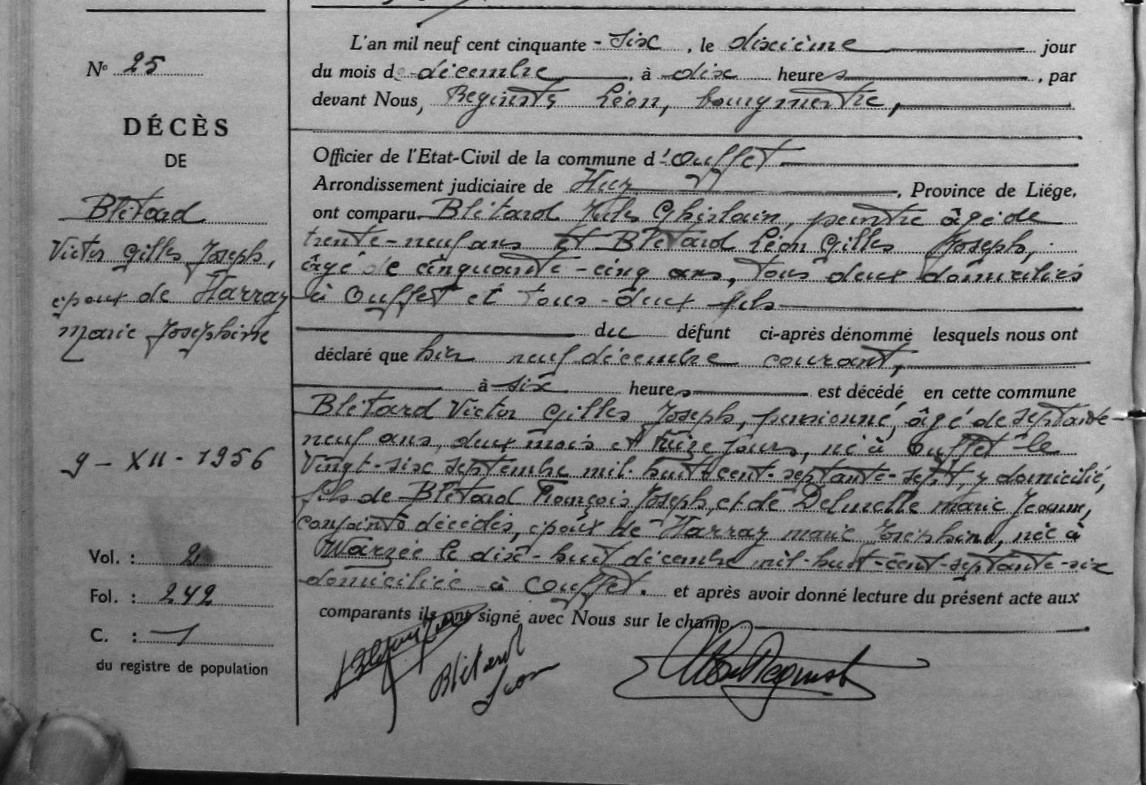 N° 25
DÉCÈS
DE
Blétard
Victor Gilles Joseph,
époux de Harray
Marie Joséphine
9 - XII - 1956
Vol. : 2
Fol. : 242
C. : 1
du registre de population
L'an mil neuf cent cinquante-six, le dixième jour
du mois de décembre, à dix heures, par
devant Nous, Léon, bourgmestre,
Officier de l'Etat-Civil de la commune d'Ouffet
Arrondissement judiciaire de Huy, Province de Liége,
ont comparu Blétard Ghislain, peintre âgé de
trente-neuf ans et Blétard Léon Gilles Joseph,
âgé de cinquante-cinq ans, tous deux domiciliés
à Ouffet et tous-deux fils
du défunt ci-après dénommé lesquels nous ont
déclaré que hier neuf décembre courant,
à six heures est décédé en cette commune
Blétard Victor Gilles Joseph, pensionné, âgé de septante-
neuf ans, deux mois et treize jours, né à Ouffet le
vingt-six septembre mil-huit-cent-septante-sept, y domicilié,
fils de Blétard François Joseph, et de Marie Jeanne,
conjoints décédés, époux de Harray Marie Joséphine, née à
Warzée le dix-huit décembre mil-huit-cent-septante-six
domiciliée à Ouffet. et après avoir donné lecture du présent acte aux
comparants ils ont signé avec Nous sur le champ
Blétard
Léon